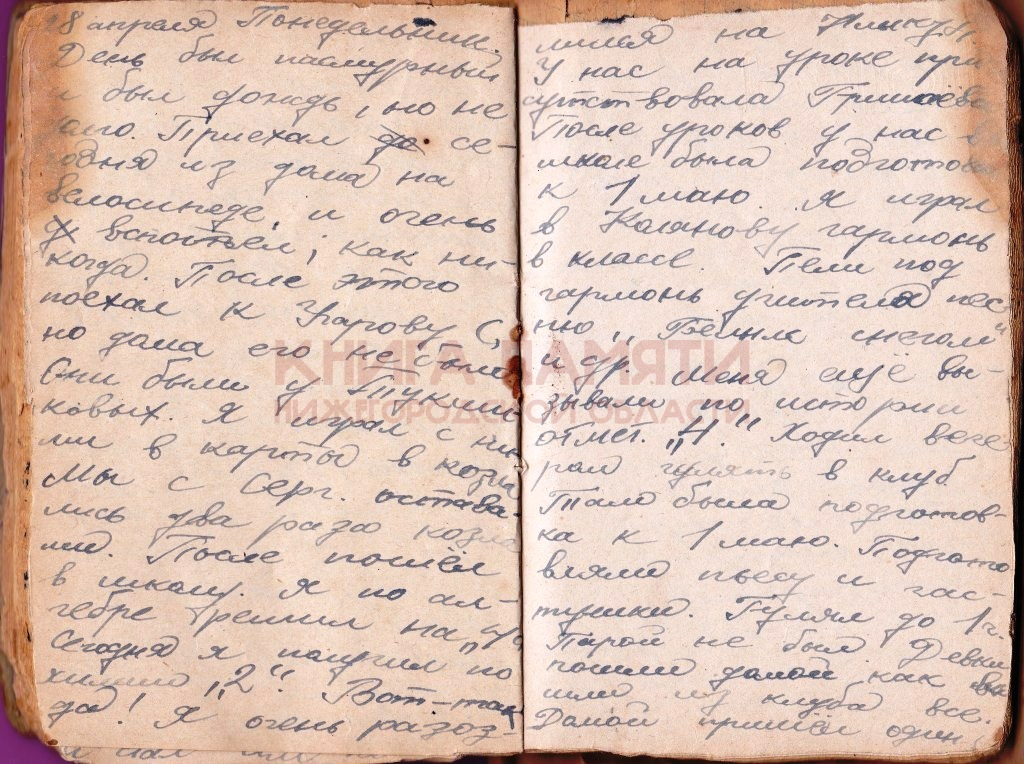 28 апреля Понедельник.
День был пасмурный
и был дождь, но не
Приехал се-
годня из дома на
велосипеде, и очень
вспотел, как ни-
когда. После этого
поехал к С,
но дома его не было
Они были у
ковых. Я играл с ни
ми в карты в козла
Мы с Серг. остава-
лись два раза козла
ми. После пошёл
в школу. Я по ал-
гебре решил на
Сегодня я получил по
химии „2“. Вот-так
да! Я очень разоз-
лился на
У нас на уроке при
сутствовала Гришаева
После уроков у нас в
школе была подготов
к 1 маю. Я играл
в гармонь
в классе. Пели под
гармонь учителя пес
ню, „Белым снегом“
и др. Меня ещё вы-
зывали по истории
отмет. „4.“ Ходил вече
ром гулять в клуб
Там была подготов-
ка к 1 маю. Подгото
вляли пьесу и час-
тушки. Гуляли до 1 г.
Парой не был Девки
пошли домой как вы
шли из клуба все.
Домой пришёл один
КНИГА ПАМЯТИ
НИЖЕГОРОДСКОЙ ОБЛАСТИ